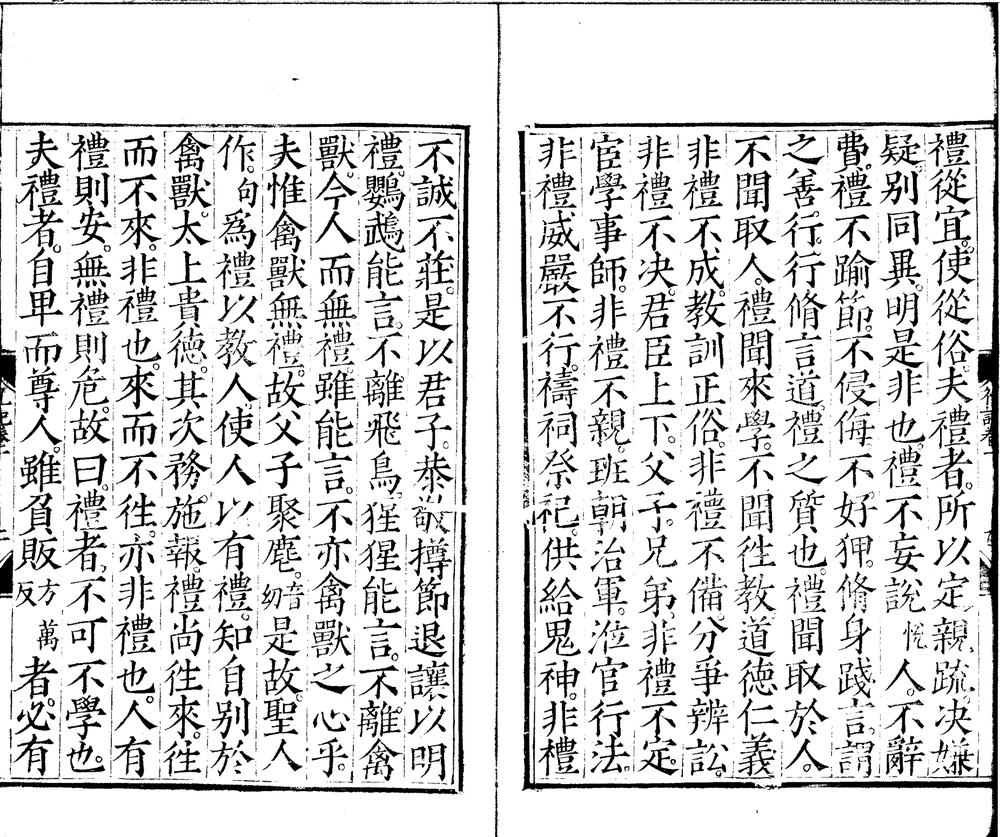 禮從宜。使從俗。夫禮者。所以定親疏。决嫌
疑。别同異。明是非也。禮不妄說悅人。不辭
費。禮不踰節。不侵侮。不好狎。脩身踐言。謂
之善行。行脩言道。禮之質也。禮聞取於人。
不聞取人。禮聞來學。不聞徃教。道德仁義
非禮不成。教訓正俗。非禮不備。分爭辨訟。
非禮不决。君臣上下。父子。兄弟。非禮不定。
宦學事師。非禮不親。班朝治軍。涖官行法。
非禮威嚴不行。禱祠祭祀。供給鬼神。非禮
不誠不莊。是以君子。恭敬撙節退讓以明
禮。鸚鵡能言。不離飛鳥。猩猩能言。不離禽
獸。今人而無禮。雖能言。不亦禽獸之心乎。
夫惟禽獸無禮。故父子聚麀。音幼是故。聖人
作。句爲禮以教人。使人以有禮。知自别於
禽獸。太上貴德。其次務施報。禮尚徃來。徃
而不來。非禮也。來而不徃。亦非禮也。人有
禮則安。無禮則危。故曰。禮者。不可不學也。
夫禮者。自卑而尊人。雖負販方萬反者。必有